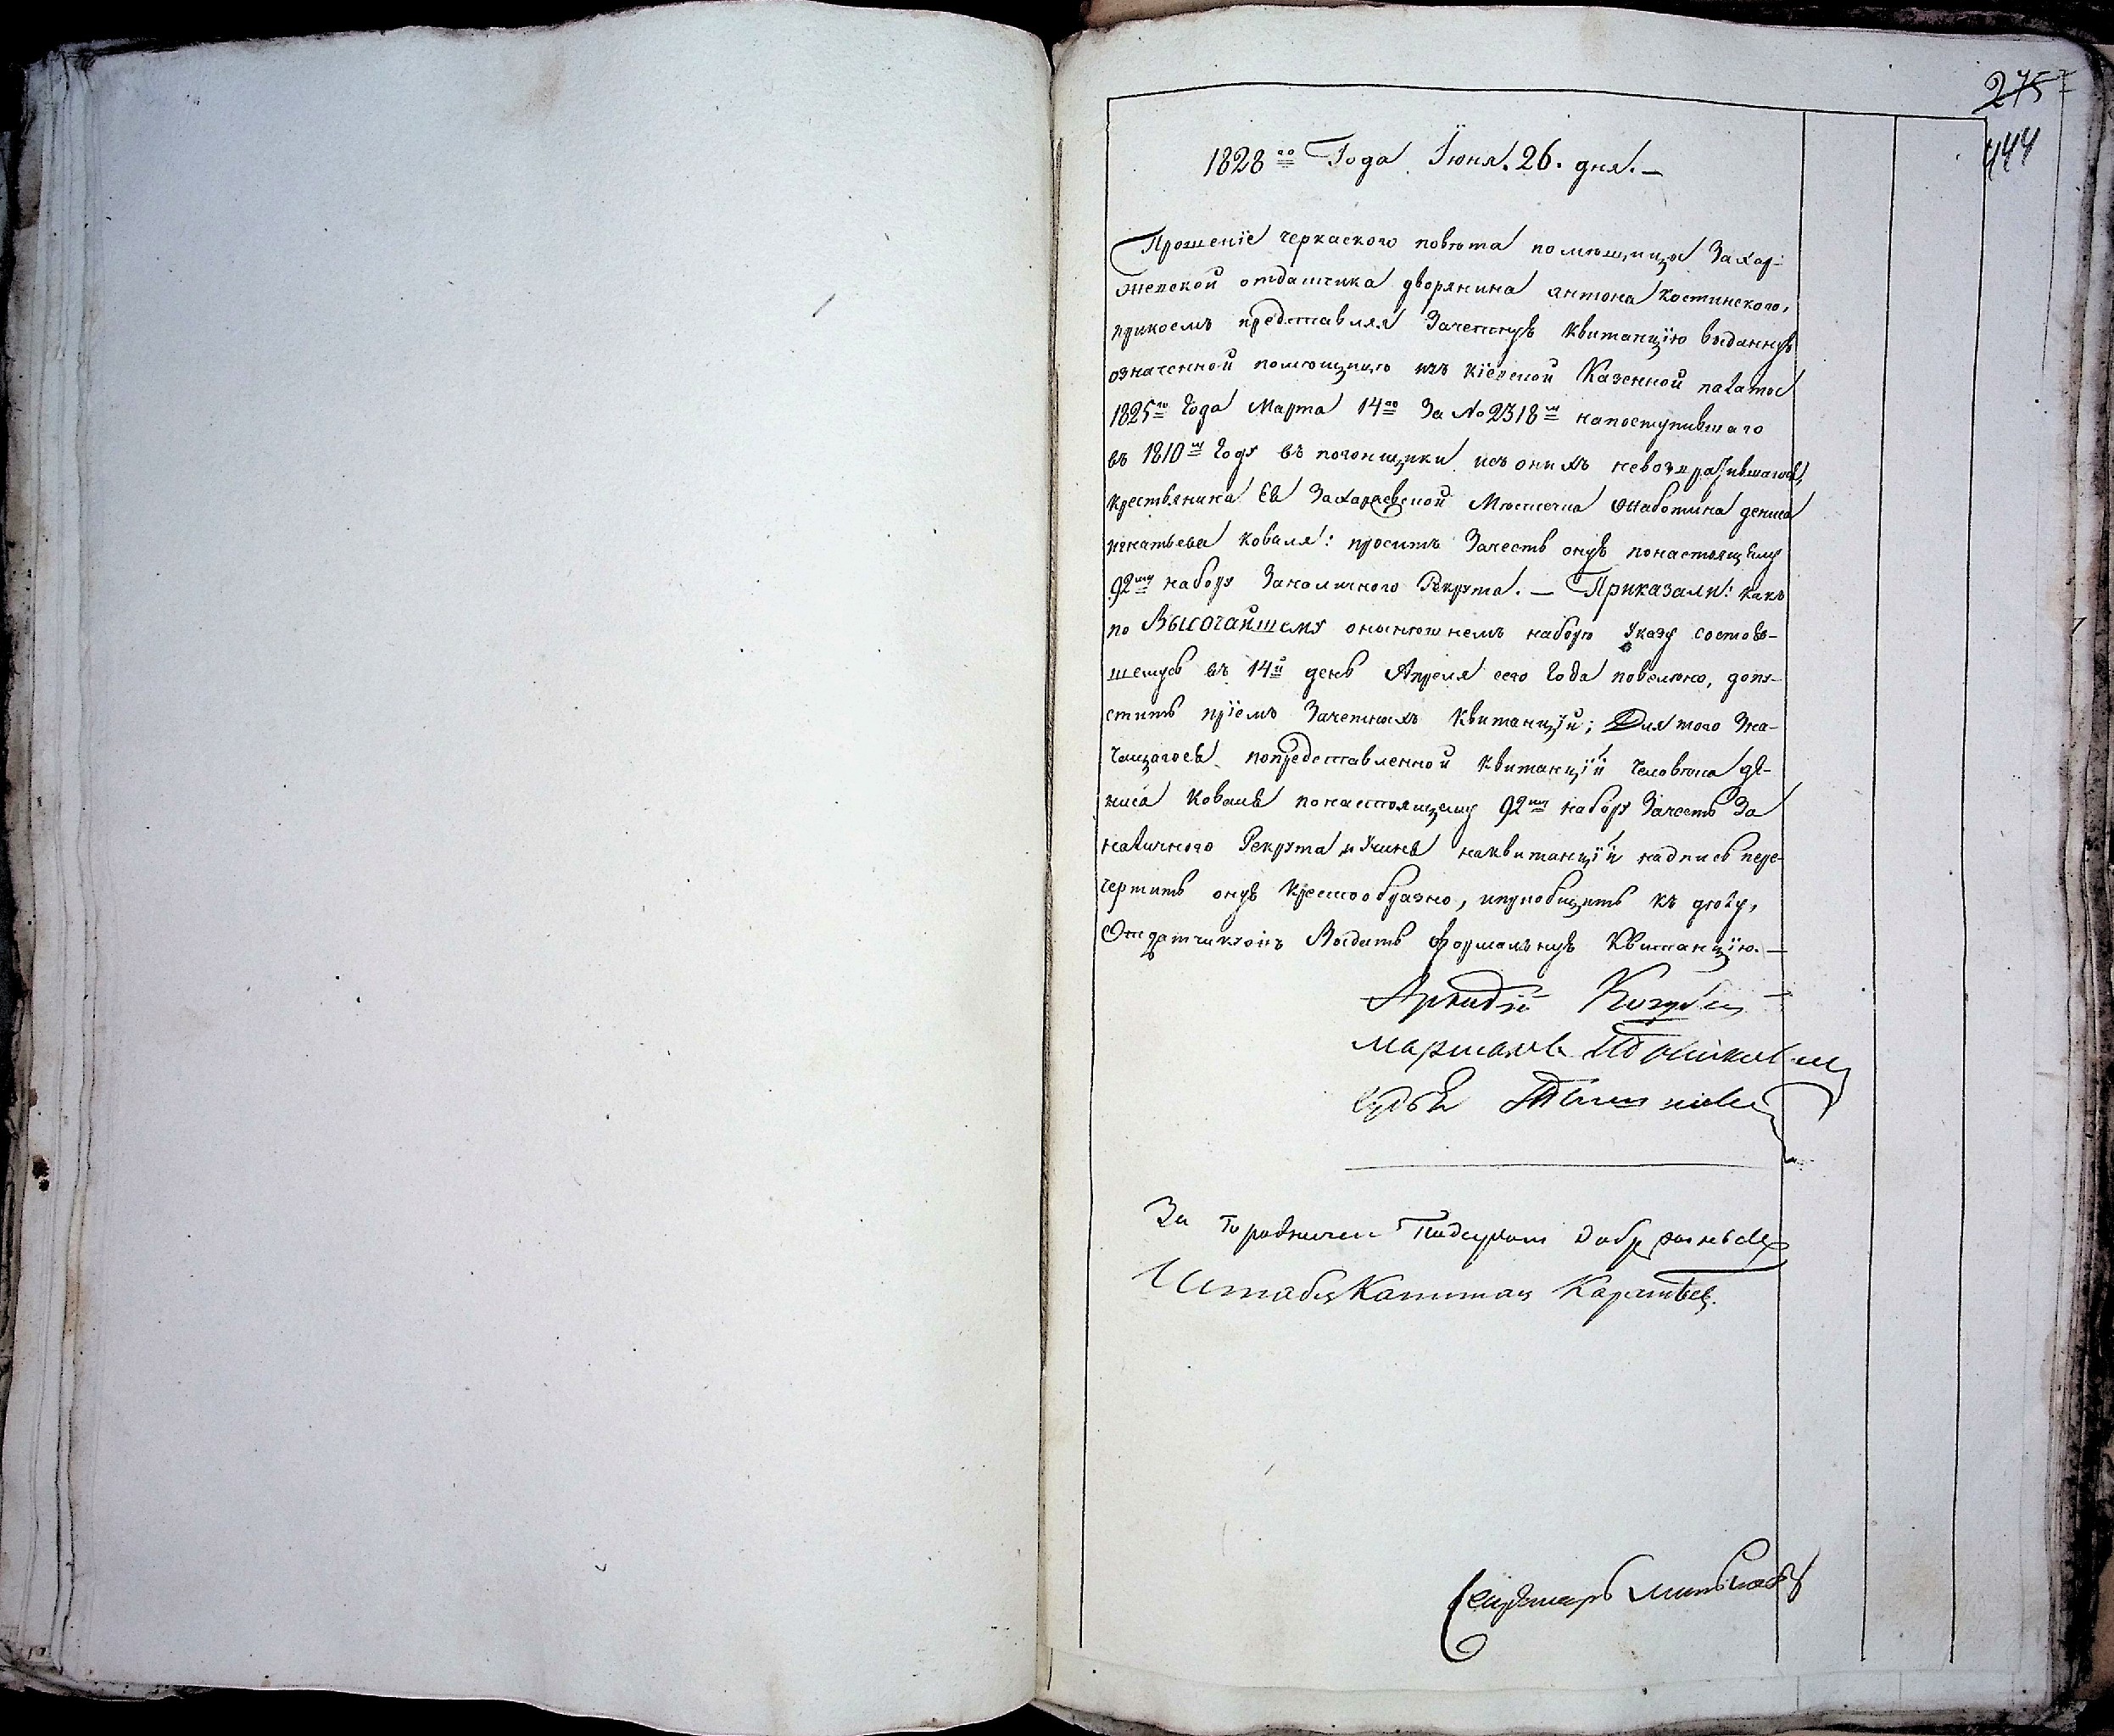 275
444
1828го Года Іюня. 26. дня. —
Прошеніе черкаского повѣта помѣщицы Захар-
жевской отдатчика дворянина антона Костинского,
прикоемъ представляя Зачетную квитанцію выданную
означенной помѣщицѣ изъ кіевской Казенной палаты
1825го Года Марта 14го За № 2318м напоступившаго
въ 1810м Году въ погонщики изъ онихъ невозвратившагося,
крестьянина Ея Захаржевской Мѣстечка Жаботина дениса
коваля: проситъ Зачесть оную понастоящему
92му набору Заналичного Рекрута. — Приказали: какъ
по Высочайшему онынѣшнемъ наборѣ Указу состояв-
шемуся въ 14й день Апреля сего Года повелѣно, допу-
стить пріемъ Зачетныхъ Квитанцій; Для того Зна-
чащагося попредставленной Квитанціи человѣка де-
ниса Коваля понастоящему 92му набору Зачесть За
наличного Рекрута и Учиня наквитанціи надпись пере-
чертить оную Крестообразно, ипріобщить къ дѣлу,
Отдатчику Выдать формальную Квитанцію. —
Аркадій
маршалъ
судья
За Городничего
Штабсъ Капитан
Секретарь